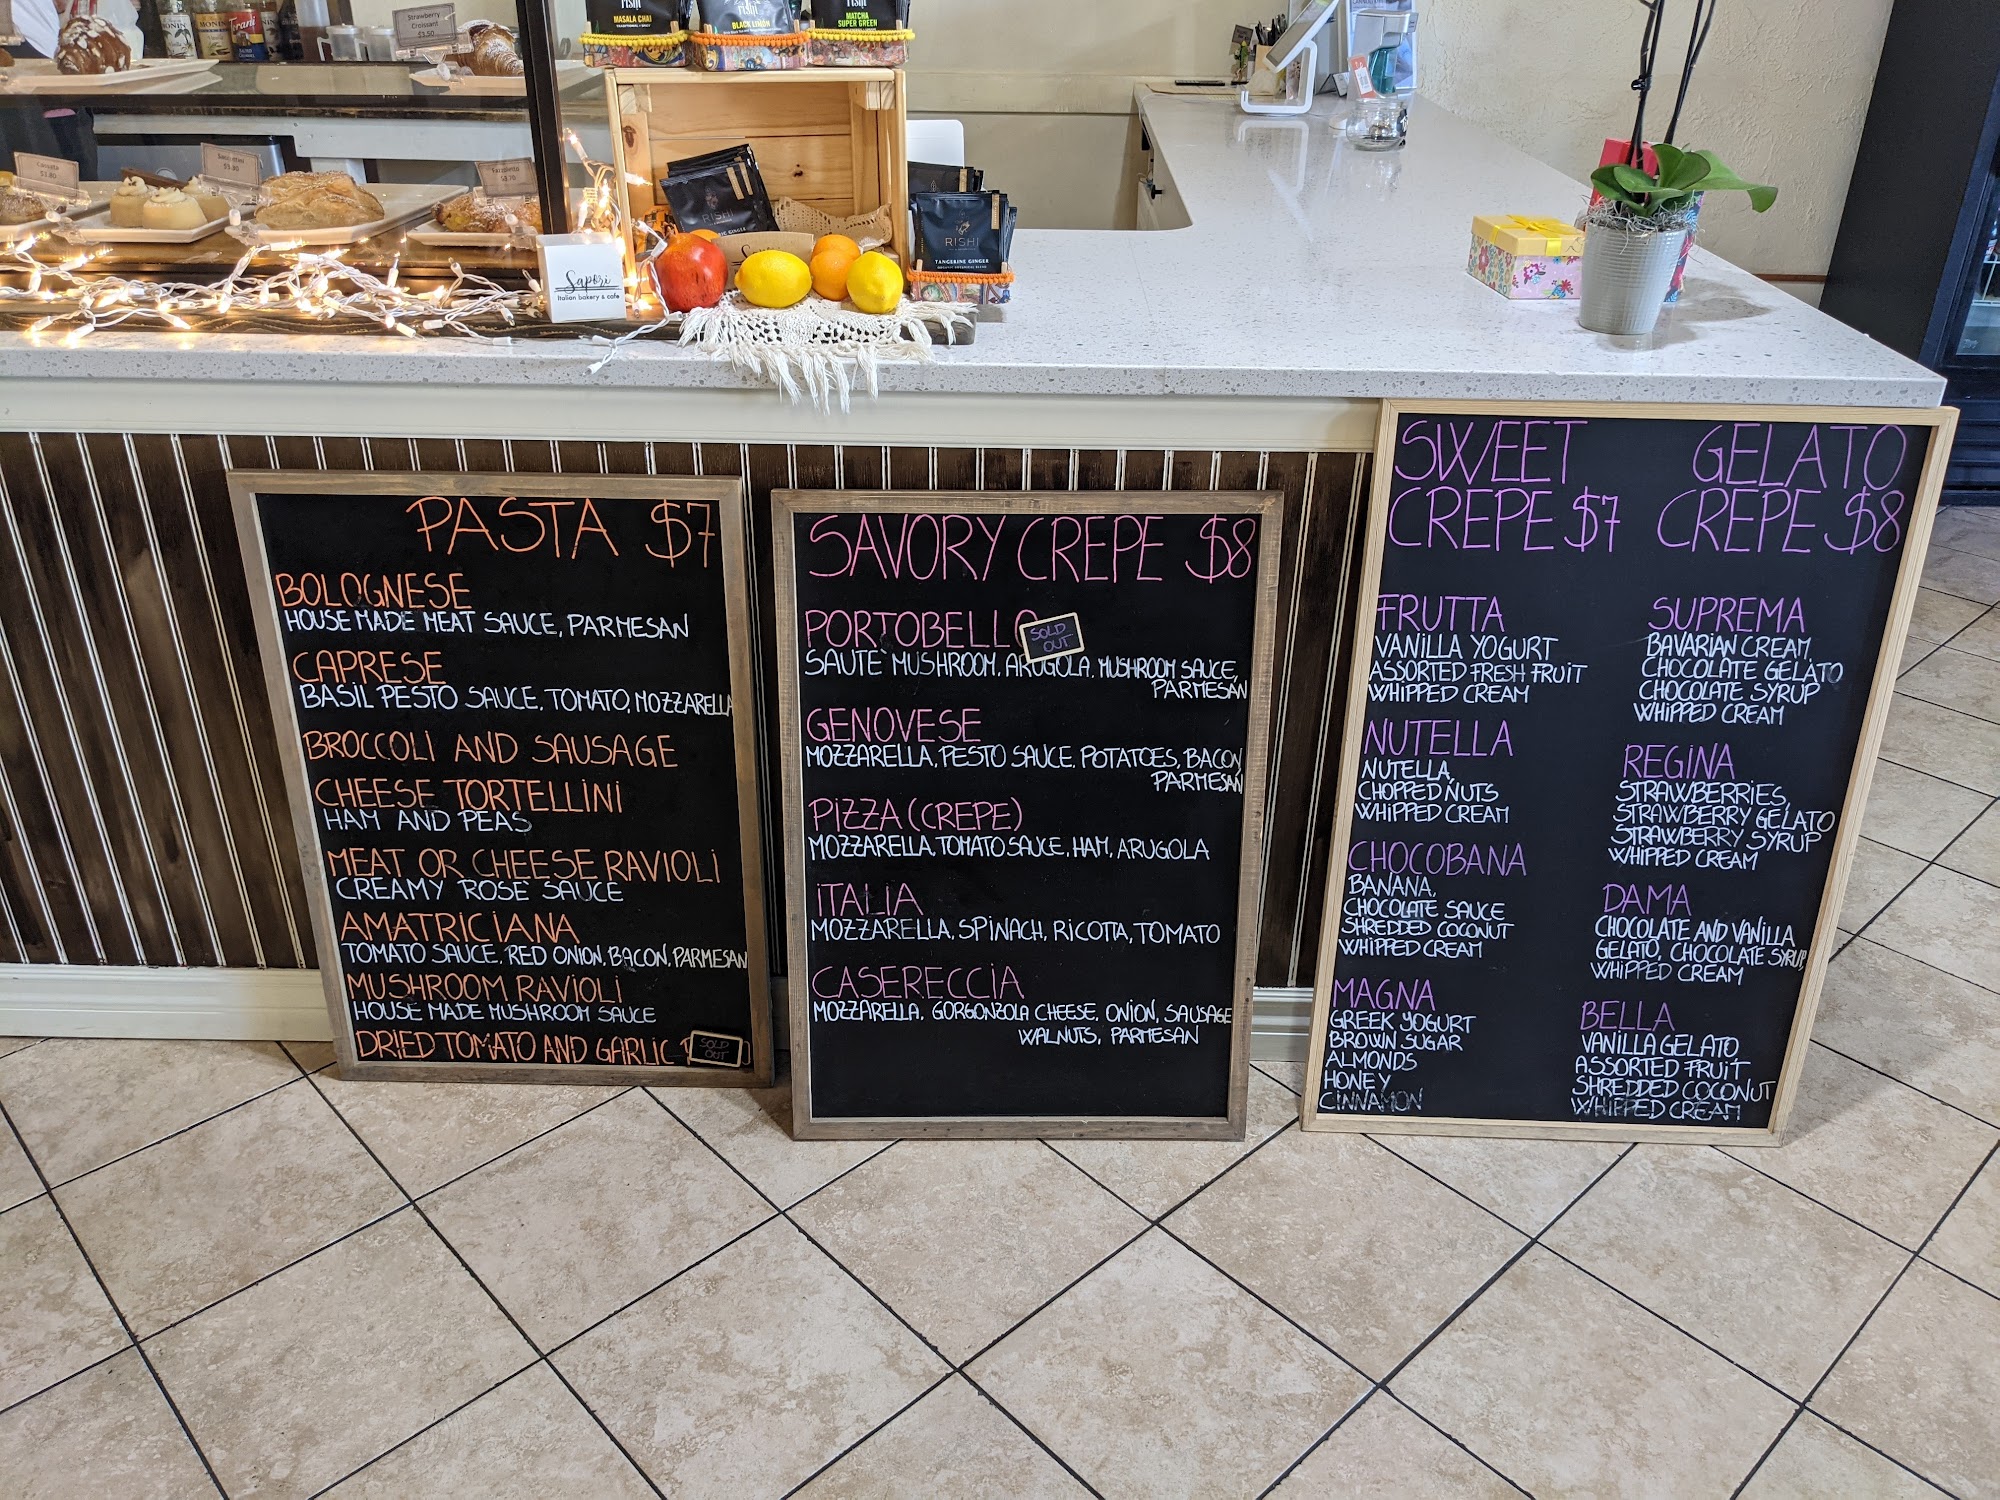 Strawberry
Croissant
$3.50
MASALA CHAI
BLACK LEMON
MATCHA
SUPER GREEN
Torani
$3.80
$3.80
$3.70
RISHI
RISHI
TANGERINE GINGER
Sapori
Italian bakery & cafe
PASTA $7
BOLOGNESE
HOUSE MADE MEAT SAUCE, PARMESAN
CAPRESE
BASIL PESTO SAUCE, TOMATO, MOZZARELLA
BROCCOLI AND SAUSAGE
CHEESE TORTELLINI
HAM AND PEAS
MEAT OR CHEESE RAVIOLI
CREAMY ROSE SAUCE
AMATRICIANA
TOMATO SAUCE, RED ONION, BACON, PARMESAN
MUSHROOM RAVIOLI
HOUSE MADE MUSHROOM SAUCE
DRIED TOMATO AND GARLIC
SOLD
OUT
SAVORY CREPE $8
PORTOBELLO
SOLD
OUT
SAUTE MUSHROOM, ARUGOLA, MUSHROOM SAUCE,
PARMESAN
GENOVESE
MOZZARELLA, PESTO SAUCE, POTATOES, BACON,
PARMESAN
PIZZA (CREPE)
MOZZARELLA, TOMATO SAUCE, HAM, ARUGOLA
ITALIA
MOZZARELLA, SPINACH, RICOTTA, TOMATO
CASERECCIA
MOZZARELLA, GORGONZOLA CHEESE, ONION, SAUSAGE
WALNUTS, PARMESAN
SWEET
CREPE $7
FRUTTA
VANILLA YOGURT
ASSORTED FRESH FRUIT
WHIPPED CREAM
NUTELLA
NUTELLA,
CHOPPED NUTS
WHIPPED CREAM
CHOCOBANA
BANANA,
CHOCOLATE SAUCE
SHREDDED COCONUT
WHIPPED CREAM
MAGNA
GREEK YOGURT
BROWN SUGAR
ALMONDS
HONEY
CINNAMON
GELATO
CREPE $8
SUPREMA
BAVARIAN CREAM,
CHOCOLATE GELATO
CHOCOLATE SYRUP
WHIPPED CREAM
REGINA
STRAWBERRIES,
STRAWBERRY GELATO
STRAWBERRY SYRUP
WHIPPED CREAM
DAMA
CHOCOLATE AND VANILLA
GELATO, CHOCOLATE SYRUP,
WHIPPED CREAM
BELLA
VANILLA GELATO,
ASSORTED FRUIT
SHREDDED COCONUT
WHIPPED CREAM